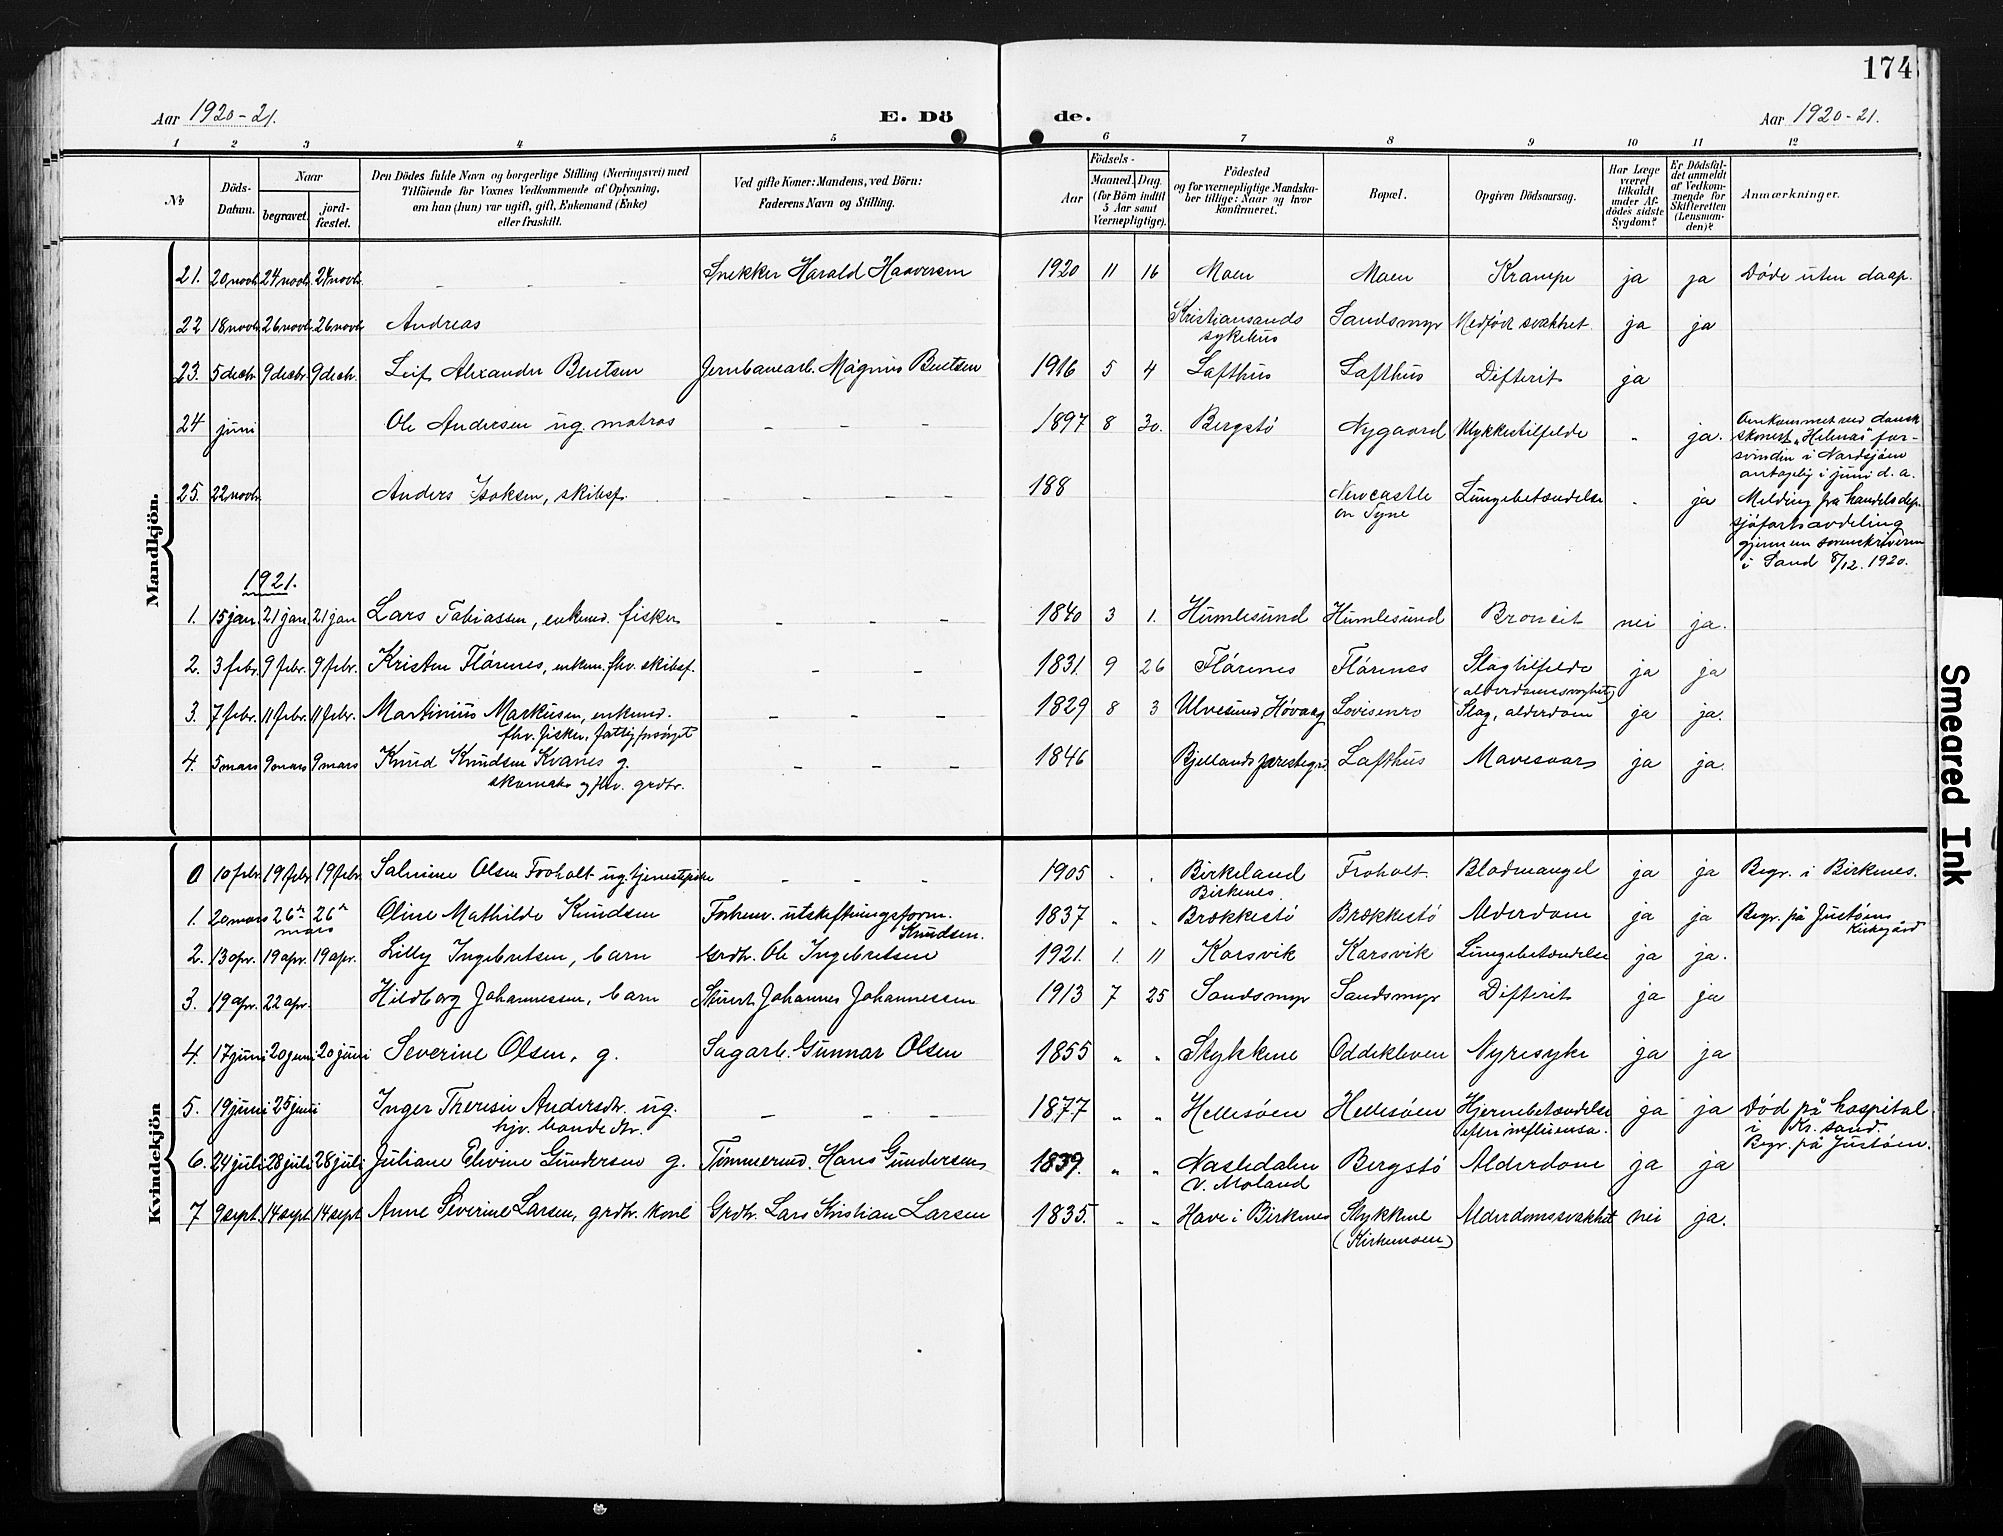 174
Aar 1920-21.
E. Dö
de.
Aar 1920-21.
1 2 3 4 5 6 7 8 9 10 11 12
No
Döds-Datum.
Naar
begravet.
jord-fæstet.
Den Dödes fulde Navn og borgerlige Stilling (Næringsvei) med
Tilföiende for Voxnes Vedkommende af Oplysning,
om han (hun) var ugift, gift, Enkemand (Enke)
eller fraskilt.
Ved gifte Koner: Mandens, ved Börn:
Faderens Navn og Stilling.
Födsels-
Aar
Maaned. Dag.
(for Börn indtil
5 Aar samt
Værnepligtige).
Födested
og for værnepligtige Mandska-
ber tillige: Naar og hvor
konfirmeret.
Bopæl.
Opgiven Dödsaarsag.
Har Læge
været
tilkaldt
under Af-
dödes sidste
Sygdom?
Er Dödsfal-
det anmeldt
af Vedkom-
mende for
Skifteretten
(Lensman-
den)?
Anmærkninger.
Mandkjön.
21. 20 novb. 24 novb. 24 novb. - - - - Snekker Harald Haaversen 1920 11 16 Moen Moen Krampe ja ja Døde uten daap.
22 18 novb. 26 novb. 26 novb. Andreas Kristiansands sykehus Sandsmyr Medfødt svakhet ja ja
23. 5 decbr. 9 decbr. 9 decbr. Leif Alexander Bentsen Jernbanearb. Magnus Bentsen 1916 5 4 Lofthus Lofthus Difterit ja
24 juni Ole Andersen ug. matros - - - 1897 8 30. Bergstø Nygaard Ulykkestilfelde - ja. Omkommet med dansk
skonert "Helenas" for-
svinden i Nordsjøen
antagelig i juni d. a.
25. 22 novb. Anders Isaksen, skibsf. - - - - 188 Newcastle on Tyne Lungebetændelse - ja Melding fra handelsdep.
sjøfartsavdeling
gjennem sorenskriveren
i Sand 8/12. 1920.
1921.
1. 15 jan. 21 jan 21 jan Lars Tobiassen, enkemd. fisker - - - 1840 3 1. Humlesund Humlesund Broncit nei ja.
2. 3 febr. 9 febr. 9 febr. Kristen Flørenes, enkem. fhv. skibsf. - - 1831. 9 26 Flørenes Flørenes Slagtilfelde ja ja
(alderdomssvaghet)
3. 7 febr. 11 febr. 11 febr. Martinius Markusen, enkemd. - - - 1829 8 3 Ulvesund, Høvaag Lovisenro Slag, alderdom ja ja.
fhv. fisker, fattigforsørget
4. 5 mars 9 mars 9 mars Knud Knudsen Kvanes g. - - - 1846 Bjellands prestegd. Lofthus Mavesaar ja ja.
skomaker og fhv. grdbr.
Kvindekjön
0 10 febr. 19 febr. 19 febr. Salmine Olsen Froholt ug. tjenestpike - - - 1905 - - Birkeland Birkenes Froholt. Blodmangel ja ja Begr. i Birkenes.
1. 20 mars 26de mars 26de Oline Mathilde Knudsen Forhenv. utskiftningsform. Knudsen. 1837 - - Brækkestø Brækkestø Alderdom ja ja Begr. på Justøens Kirkegård
2. 13 apr. 19 apr. 19 apr. Lilly Ingebretsen, barn Grdbr. Ole Ingebretsen 1921. 1. 11 Karsvik Karsvik Lungebetændelse ja ja.
3. 19 apr. 22 apr. Hildborg Johannessen, barn Stuert Johannes Johannessen 1913 7 25 Sandsmyr Sandsmyr Difterit ja ja
4. 17 juni 20 juni 20 juni Severine Olsen, g. Sagarb. Gunnar Olsen 1855 - - Stykkene Oddekleven Nyresyke ja ja
5. 19 juni 25 juni Inger Theresie Andersdtr. ug. - - - 1877 - - Hellesøen Hellesøen Hjernebetændelse ja ja Død på hospital
hjv. bondedtr. efter influensa. i Kr.sand.
Begr. på Justøen.
6. 24 juli 28 juli 28 juli Juliane Elvine Gundersen g. Tømmermd. Hans Gundersen 1839. - - Nasledalen V. Moland Bergstø Alderdom ja ja
7 9 sept. 14 sept 14 sept Anne Severine Larsen, grdbr. kone Grdbr. Lars Kristian Larsen 1835. - - Have i Birkenes Stykkene Alderdomssvakhet nei ja.
(Kirkemoen)
Smeared Ink